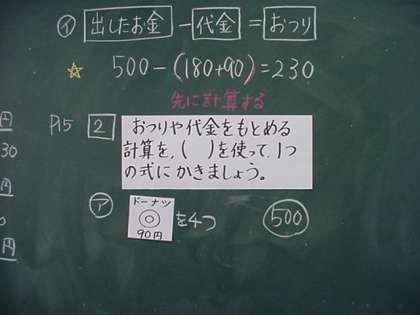 ㋑ 出したお金 - 代金 = おつり
☆ 500-(180+90)=230
先に計算する
P15 2
おつりや代金をもとめる
計算を、( )を使って、1つ
の式にかきましょう。
㋐ ドーナツ 90円 を4つ 500
30
円
0
円